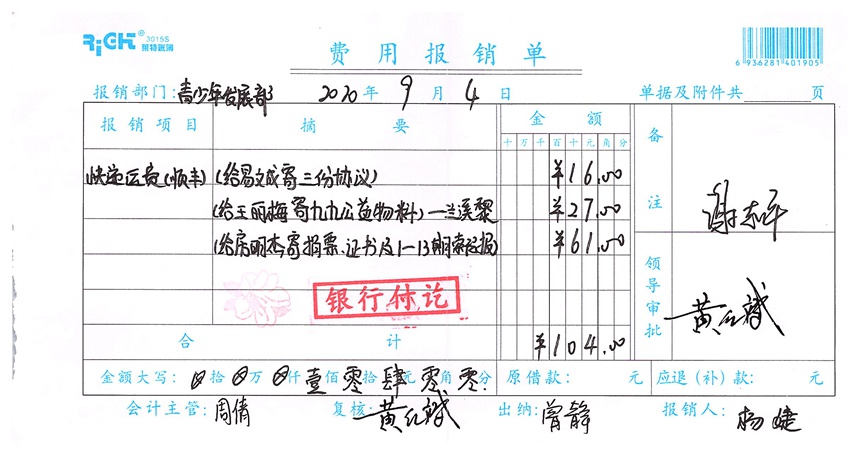 RiCH 3015S
莱特账簿
费用报销单
6 936281 401905
报销部门:青少年发展部 2020年9月4日 单据及附件共 页
报销项目 摘要 金额 备注
十万千百十元角分
快递运费(顺丰) (给易文成寄三份协议) ¥16.00
谢东平
(给王丽梅寄九九公益物料)—兰溪黎 ¥27.00
(给房明杰寄捐票、证书及1-13期 ¥61.00
领导审批
银行付讫
黄红斌
合计 ¥104.00
金额大写: 拾 万 仟壹佰零拾肆元零角零分 原借款: 元 应退(补)款: 元
会计主管:周倩 复核:黄红斌 出纳:曾静 报销人:杨婕